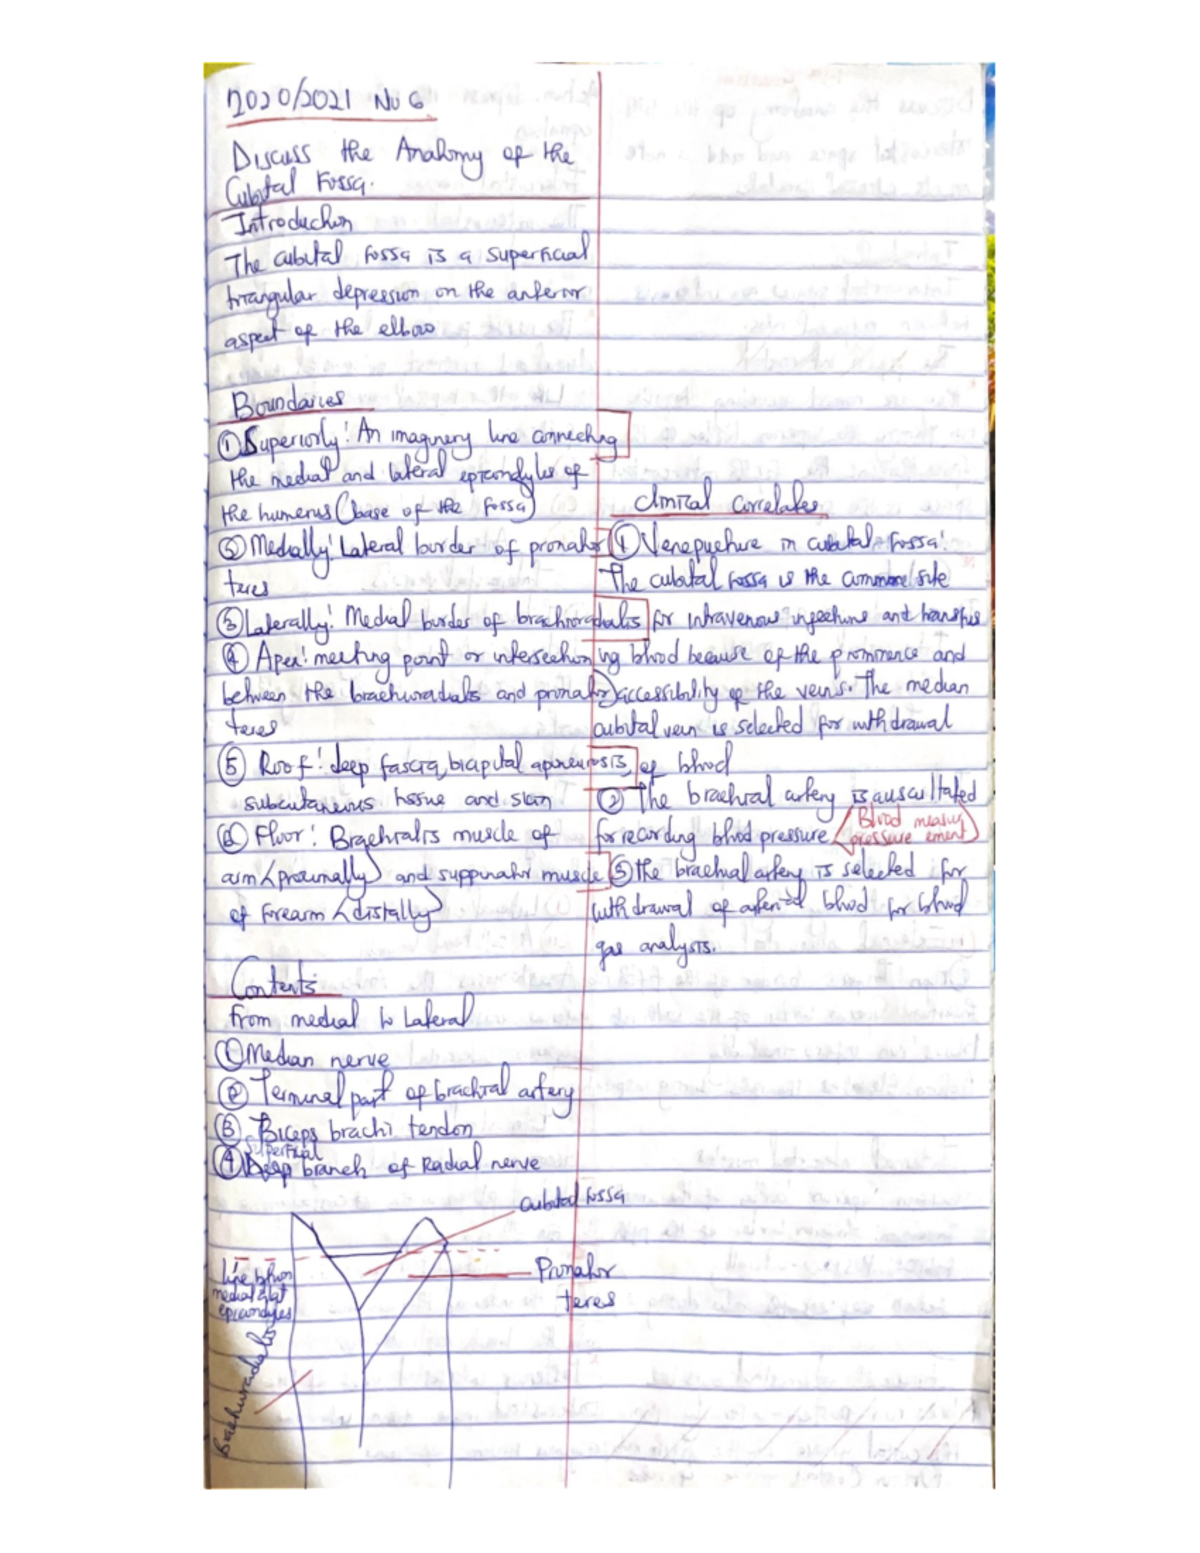 2020/2021 No 6
Discuss the Anatomy of the
Cubital Fossa.
Introduction
The cubital fossa is a superficial
triangular depression on the anterior
aspect of the elbow
Boundaries
① Superiorly: An imaginery line connecting
the medial and lateral epicondyles of
the humerus (base of the fossa)
② Medially: Lateral border of pronator
teres
③ Laterally: Medial border of brachioradialis
④ Apex: meeting point or intersection
between the brachioradials and pronator
teres
⑤ Roof: deep fascia, bicipital aponeurosis,
subcutaneous tissue and skin
⑥ Floor: Brachialis muscle of
arm (proximally) and suppinator muscle
of forearm (distally)
Contents
from medial to Lateral
① Median nerve
② Terminal part of brachial artery
③ Biceps brachi tendon
superficial
④ Deep branch of Radial nerve
Clinical correlates
① Venepucture in cubital fossa:
The cubital fossa is the common site
for intravenous injections and transfus
ing blood because of the prominence and
accessibility of the veins. The median
cubital vein is selected for withdrawal
of blood
② The brachial artery is auscultated
for recording blood pressure
Blood measur
pressure ement
③ the brachial artery is selected for
withdrawal of arterial blood for blood
gas analysis.
cubital fossa
Pronator
teres
line btwn
medial & lat
epicondyles
Brachioradialis